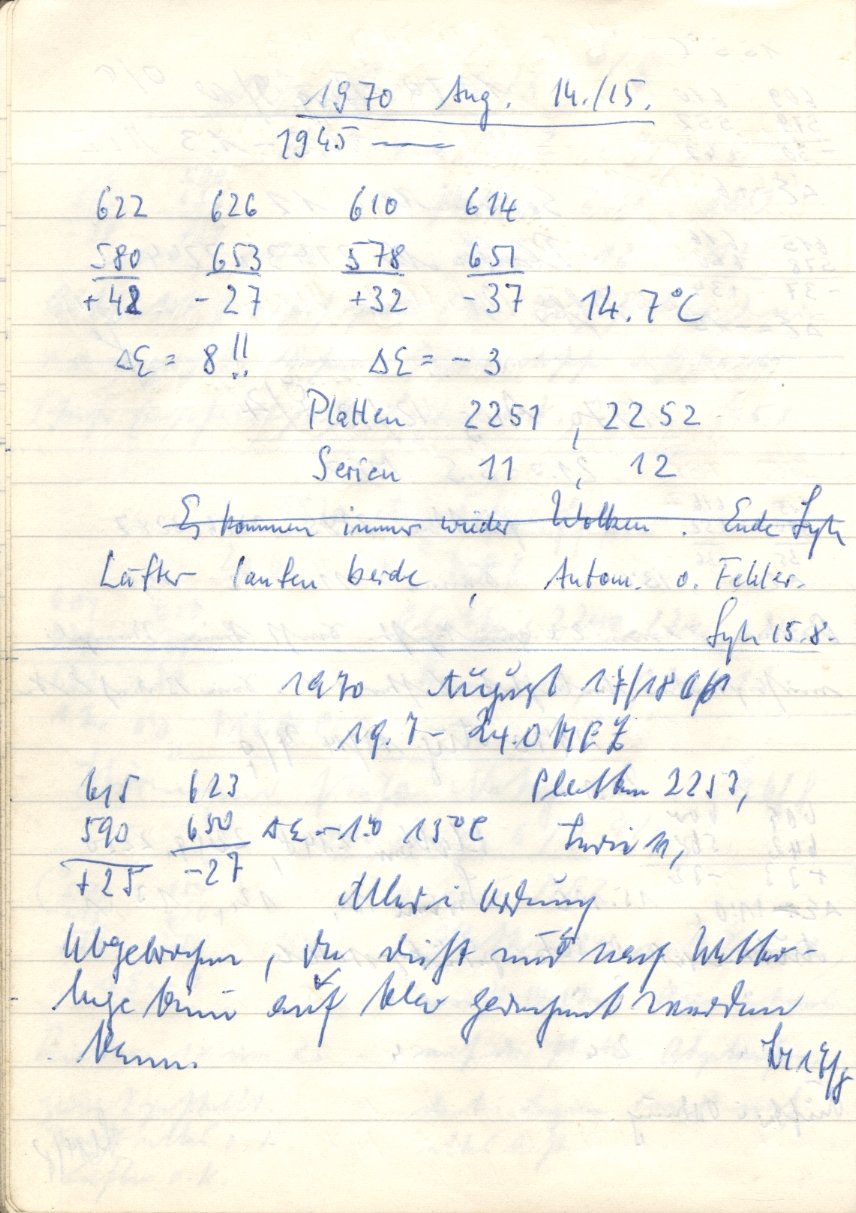 1970 Aug. 14./15.
1945 —
622 626 610 614
580 653 578 651
+42 -27 +32 -37 14.7°C
Δξ = 8!! Δξ = -3
Platten 2251, 2252
Serien 11, 12
Es kommen immer wieder Wolken. Ende
Lüfter laufen beide, Autom. o. Fehler.
15.8.
1970 August 17/18
19.7 - 24.0 MEZ
615 623 Platten 2253,
590 650 Δξ -1.0 13°C Serie 11,
+25 -27
Alles i Ordnung
Abgebrochen, da dicht und nach Wetter-
lage kaum auf klar gerechnet werden
kann.